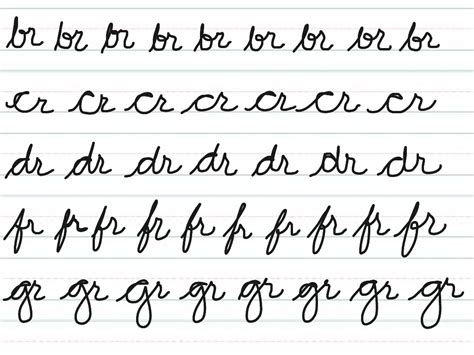 br br br br br br br br br
cr cr cr cr cr cr cr cr
dr dr dr dr dr dr dr
fr fr fr fr fr fr fr fr fr
gr gr gr gr gr gr gr gr